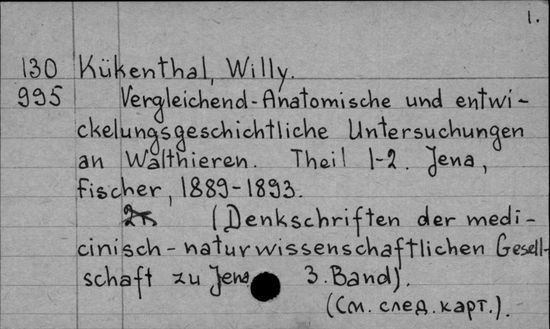 1.
130 Kükenthal, Willy.
995 Vergleichend-Anatomische und entwi-
ckelungsgeschichtliche Untersuchungen
an Walthieren. Theil 1-2. Jena,
Fischer, 1889-1893.
(Denkschriften der medi-
cinisch-naturwissenschaftlichen Gesell-
schaft zu Jena 3. Band).
(См. след. карт.).